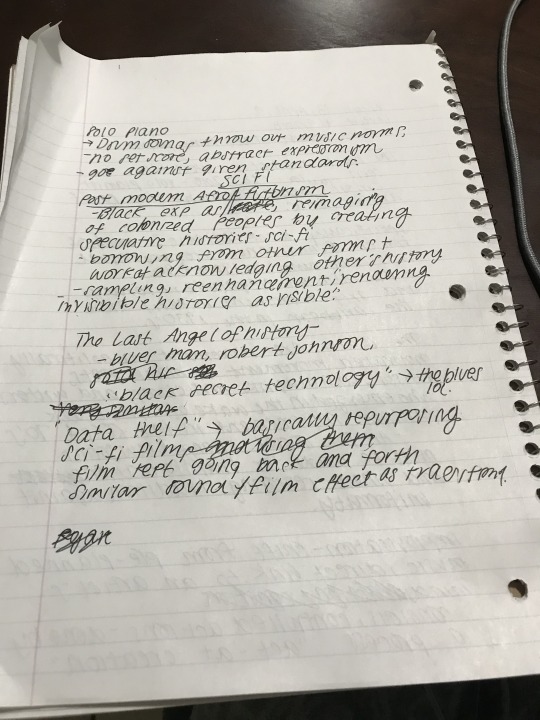 Polo Piano
→ Drum soings throw out music norms.
- no set score, abstract expressionism
- goe against given standards.
SCI FI
Post modern Afrofuturism
- Black exp as, reimaging
of colonized peoples by creating
speculative histories - sci-fi
- borrowing from other forms +
work at acknowledging other's history
- sampling, reenhancement; "rendering
invisibible histories as visible".
The Last Angel of history -
- blues man, robert johnson,
"black secret technology" → the blues
"Data theif" → basically repurposing
sci-fi films and using them
film kept going back and forth
similar sound / film effect as transitions.